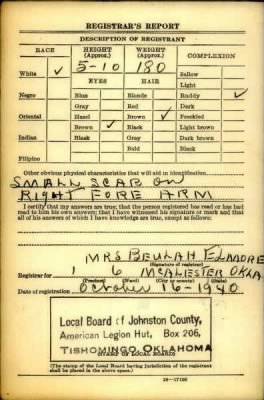 REGISTRAR'S REPORT
DESCRIPTION OF REGISTRANT
RACE HEIGHT (Approx.) WEIGHT (Approx.) COMPLEXION
White ✓ 5-10 180 Sallow
EYES HAIR Light
Negro Blue Blonde Ruddy ✓
Gray Red Dark
Oriental Hazel Brown ✓ Freckled
Brown ✓ Black Light brown
Indian Black Gray Dark brown
Bald Black
Filipino
Other obvious physical characteristics that will aid in identification
SMALL SCAR ON
RIGHT FORE ARM
I certify that my answers are true; that the person registered has read or has had
read to him his own answers; that I have witnessed his signature or mark and that
all of his answers of which I have knowledge are true, except as follows:
MRS BEULAH ELMORE
(Signature of registrar)
Registrar for 1 6 MCALESTER OKLA
(Precinct) (Ward) (City or county) (State)
Date of registration October 16-1940
Local Board of Johnston County,
American Legion Hut, Box 206,
TISHOMINGO, OKLAHOMA
(STAMP OF LOCAL BOARD)
(The stamp of the Local Board having jurisdiction of the registrant
shall be placed in the above space.)
16-17105